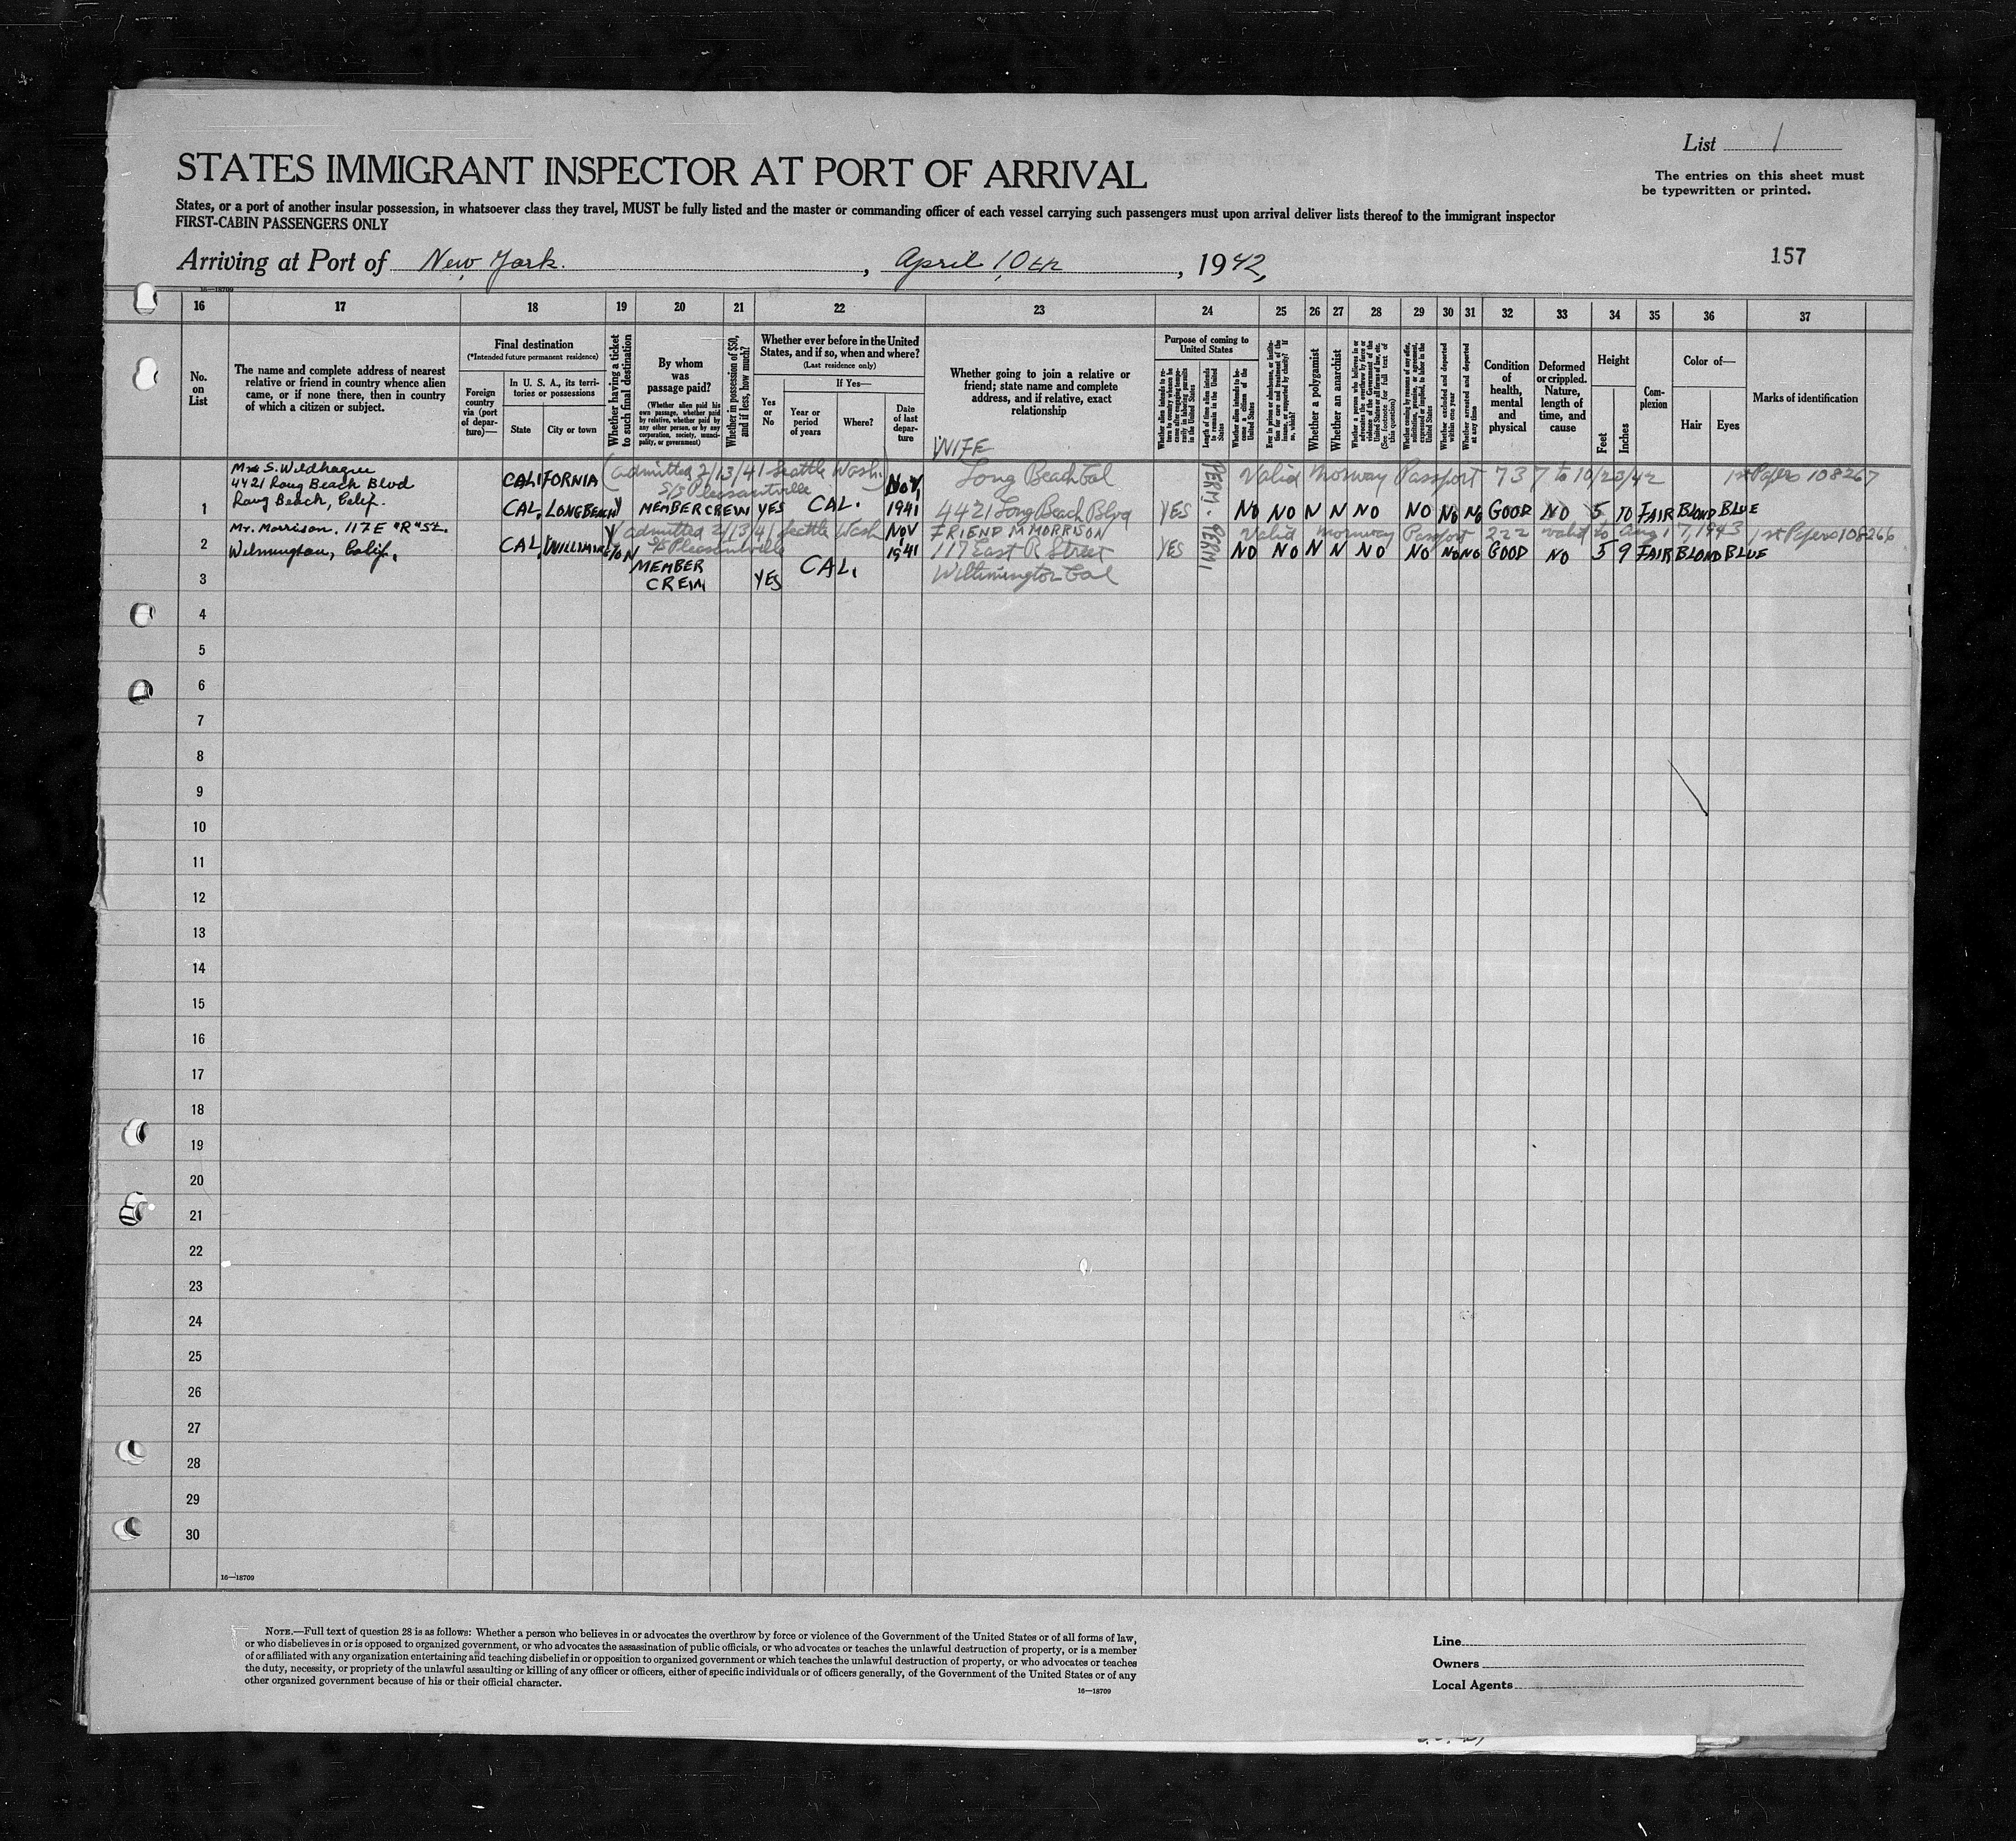 List 1
STATES IMMIGRANT INSPECTOR AT PORT OF ARRIVAL
The entries on this sheet must
be typewritten or printed.
States, or a port of another insular possession, in whatsoever class they travel, MUST be fully listed and the master or commanding officer of each vessel carrying such passengers must upon arrival deliver lists thereof to the immigrant inspector
FIRST-CABIN PASSENGERS ONLY
Arriving at Port of New York. , April 10th , 1942,
157
16—18709
16 17 18 19 20 21 22 23 24 25 26 27 28 29 30 31 32 33 34 35 36 37
No.
on
List
The name and complete address of nearest
relative or friend in country whence alien
came, or if none there, then in country
of which a citizen or subject.
Final destination
(*Intended future permanent residence)
Foreign
country
via (port
of depar-
ture)—
In U. S. A., its terri-
tories or possessions
State
City or town
Whether having a ticket
to such final destination
By whom
was
passage paid?
(Whether alien paid his
own passage, whether paid
by relative, whether paid by
any other person, or by any
corporation, society, munici-
pality, or government)
Whether in possession of $50,
and if less, how much?
Whether ever before in the United
States, and if so, when and where?
(Last residence only)
Yes
or
No
If Yes—
Year or
period
of years
Where?
Date
of last
depar-
ture
Whether going to join a relative or
friend; state name and complete
address, and if relative, exact
relationship
Purpose of coming to
United States
Length of time alien intends
to remain in the United
States
Whether alien intends to be-
come a citizen of the
United States
Whether a polygamist
Whether an anarchist
Whether a person who believes in or
advocates the overthrow by force or
violence of the Government of the
United States or all forms of law, etc.
(See footnote for full text of
this question)
Whether excluded and deported
within one year
Whether arrested and deported
at any time
Condition
of
health,
mental
and
physical
Deformed
or crippled.
Nature,
length of
time, and
cause
Height
Feet
Inches
Com-
plexion
Color of—
Hair
Eyes
Marks of identification
WIFE
Mrs S. Wildhagen
4421 Long Beach Blvd
Long Beach, Calif.
CALIFORNIA (admitted 2/13/41 Seattle Wash.)
S/S Pleasantville
Nov, Long Beach Cal
PERM. Valid Norway Passport 737 to 10/23/42 1st Papers 108267
1 CAL. LONG BEACH Y MEMBER CREW YES CAL. 1941 4421 Long Beach Blvd YES NO NO N N NO NO NO NO GOOD NO 5 10 FAIR BLOND BLUE
Mr. Morrison. 117 E "R" St.
Wilmington, Calif.
Y admitted 2/13/41 Seattle Wash NOV FRIEND M MORRISON PERM. Valid Norway Passport 222 valid to Aug 17, 1943 1st Papers 108266
2 CAL. WILLIMINGTON S/S Pleasantville 1941 117 East R Street YES NO NO N N NO NO NO NO GOOD NO 5 9 FAIR BLOND BLUE
3 MEMBER
CREW YES CAL. Willimington Cal
4
5
6
7
8
9
10
11
12
13
14
15
16
17
18
19
20
21
22
23
24
25
26
27
28
29
30
16—18709
NOTE.—Full text of question 28 is as follows: Whether a person who believes in or advocates the overthrow by force or violence of the Government of the United States or of all forms of law,
or who disbelieves in or is opposed to organized government, or who advocates the assassination of public officials, or who advocates or teaches the unlawful destruction of property, or is a member
of or affiliated with any organization entertaining and teaching disbelief in or opposition to organized government or which teaches the unlawful destruction of property, or who advocates or teaches
the duty, necessity, or propriety of the unlawful assaulting or killing of any officer or officers, either of specific individuals or of officers generally, of the Government of the United States or of any
other organized government because of his or their official character.
16—18709
Line
Owners
Local Agents